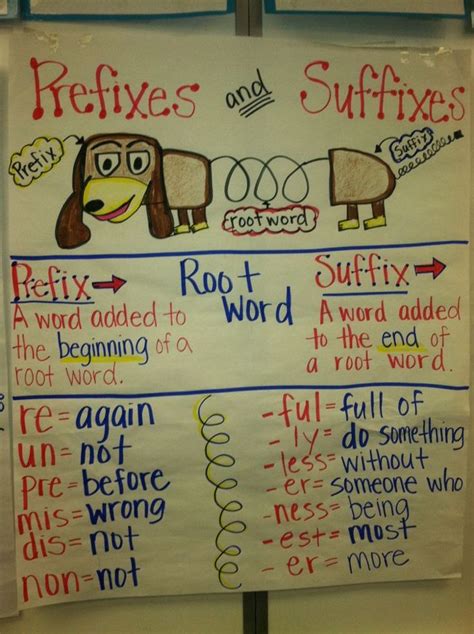 Prefixes and Suffixes
Prefix
root word
Suffix
Prefix →
A word added to
the beginning of a
root word.
Root
Word
Suffix →
A word added
to the end of
a root word.
re=again
un=not
pre=before
mis=wrong
dis=not
non=not
-ful=full of
-ly=do something
-less=without
-er=someone who
-ness=being
-est=most
-er=more